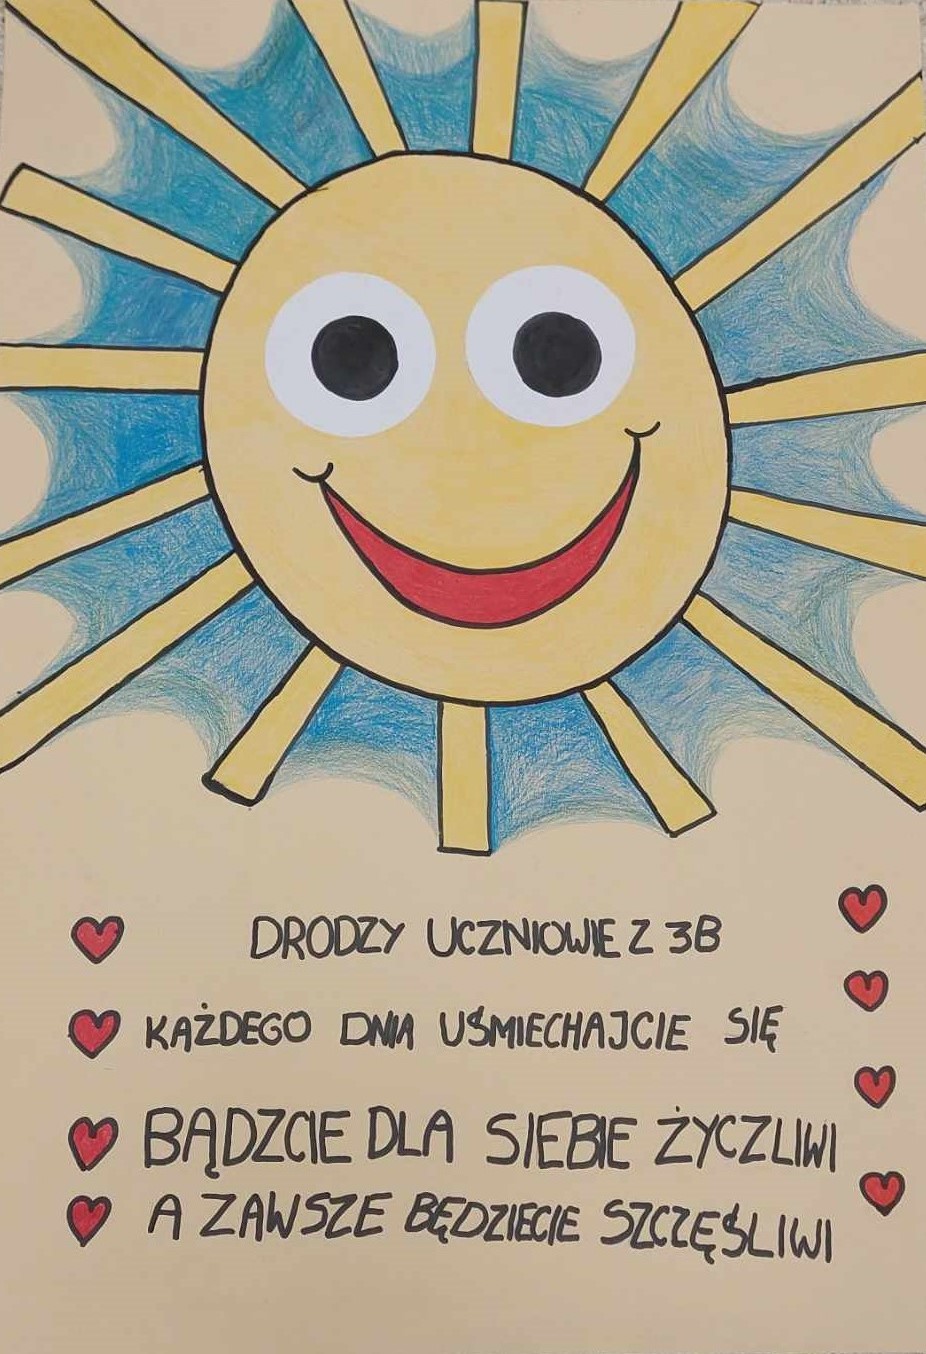 DRODZY UCZNIOWIE Z 3B
KAŻDEGO DNIA UŚMIECHAJCIE SIĘ
BĄDZCIE DLA SIEBIE ŻYCZLIWI
A ZAWSZE BĘDZIECIE SZCZĘŚLIWI